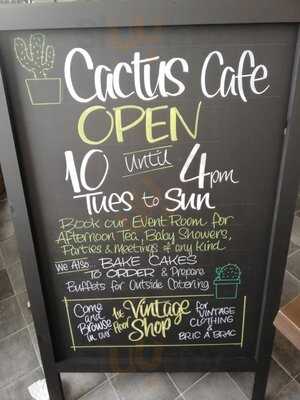 Cactus Cafe
OPEN
10 until 4pm
Tues to Sun
Book our Event Room for
Afternoon Tea, Baby Showers,
Parties & Meetings of any Kind
We Also BAKE CAKES
TO ORDER & Prepare
Buffets for Outside Catering
Come and Browse in our
1st Floor
Vintage Shop
for VINTAGE CLOTHING & BRIC A BRAC